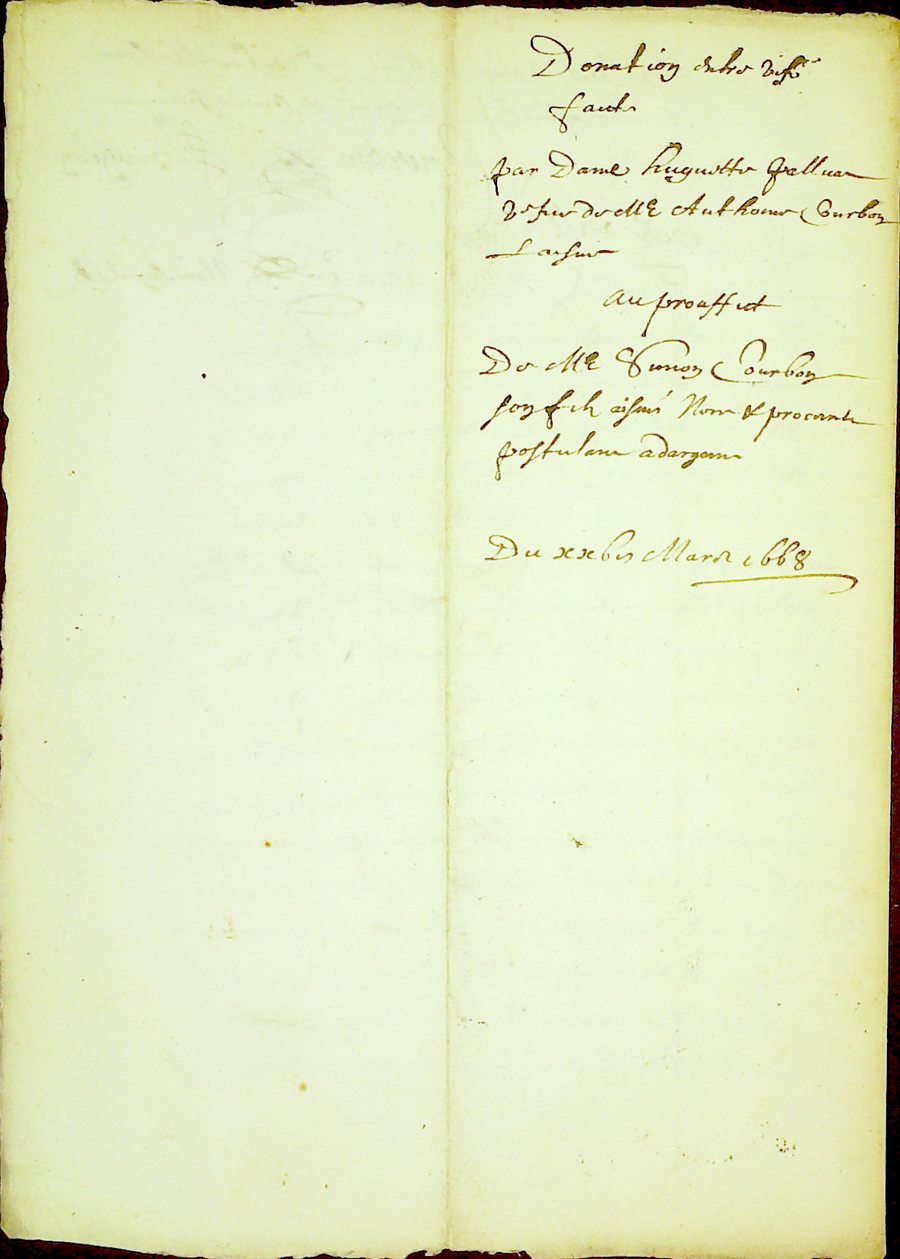 Donation entre vifs
faite
par Dame huguette palluat
vefue de Me Anthoine Courbon
Laisne
Au prouffict
De Me Simon Courbon
son filz aisné Nore & procureur
postulant
Du xxbie Mars 1668